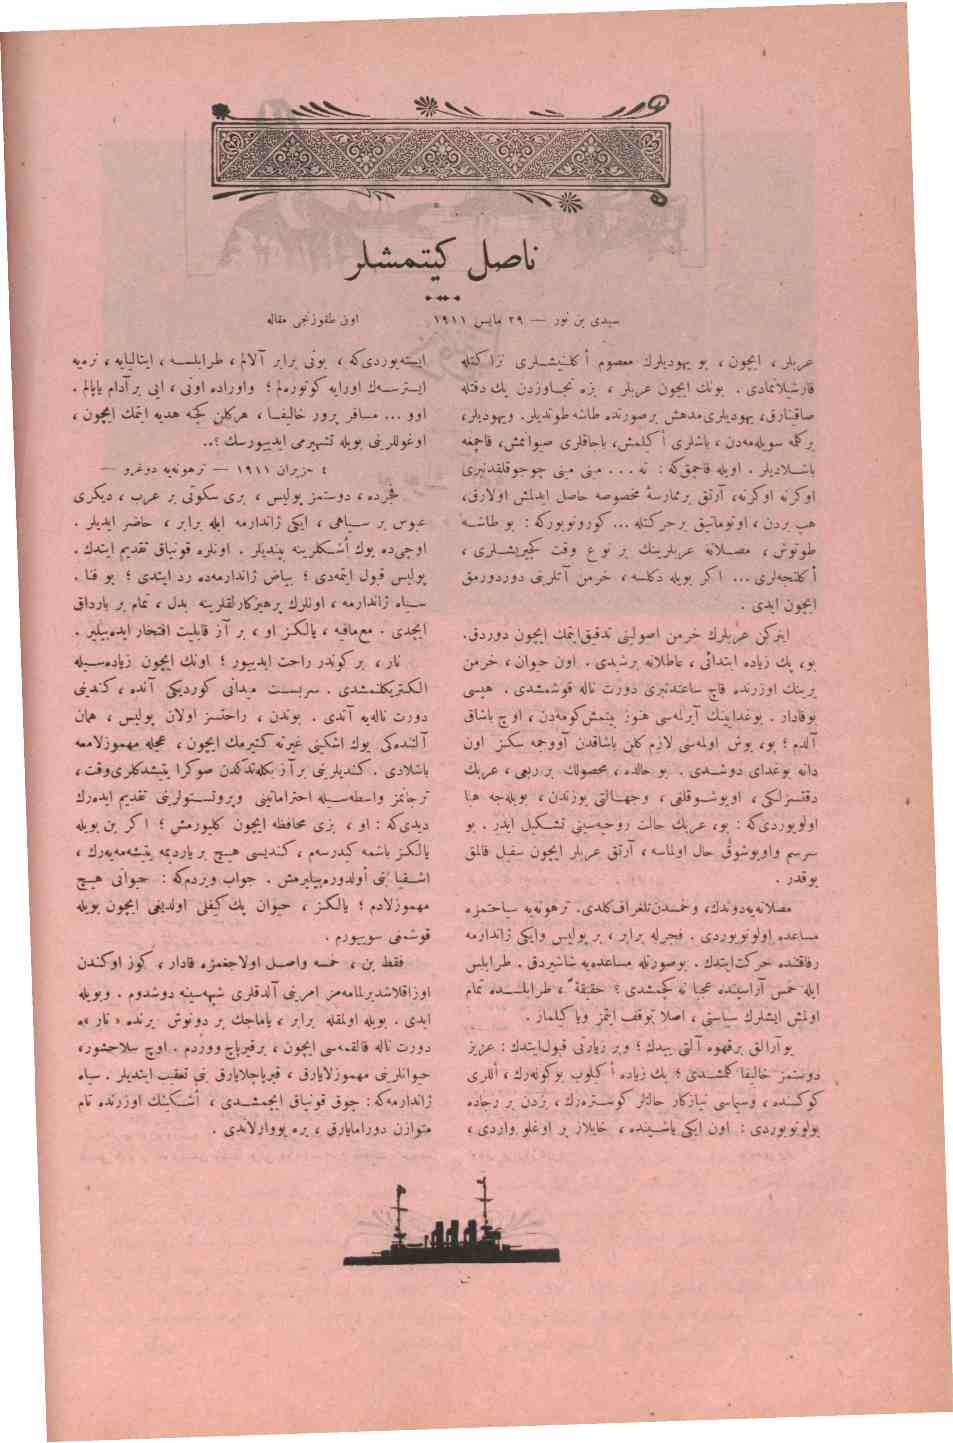 ناصل كيتمشلر
سيدى بن نور — ٢٩ مايس ١٩١١
اون طقوزنجى مقاله
عربلر ، ايچون ، بو يهوديلرك معصوم أكلنيشلرى نزاكتله
قارشيلانمادى . بونك ايچون عربلر ، بزه تجاوزدن پك دقتله
صاقينارق، يهوديلرى مدهش برصورتده طاشه طوتديلر. ويهوديلر،
بركله سويلمه‌دن ، باشلرى أكيلمش، باجاقلرى صيوانمش، قاچمغه
باشلاديلر . اويله قاچمق كه : نه ... مينى مينى چوجوقلقدنبرى
اوكرنه اوكرنه، آرتق برممارسهٔ مخصوصه حاصل ايدلمش اولارق،
هپ بردن ، اوتوماتيق برحركتله ... كورونويوركه : بو طاشه
طوتوش ، مصلانه عربلرينك بر نوع وقت كچيريشلرى ،
أكلنجه‌لرى ... اكر بويله دكلسه ، خرمن آتلرينى دوردورمق
ايچون ايدى .
ايتركن عربلرك خرمن اصولينى تدقيق ايتمك ايچون دوردق.
بو، پك زياده ابتدائى ، عاطلانه برشيدى . اون حيوان ، خرمن
يرينك اوزرنده قاچ ساعتدنبرى دورت ناله قوشمشدى . هپسى
بوقادار . بوغدايينك آيرلمه‌سى هنوز بيتمش كومه‌دن ، اوچ باشاق
آلدم ؛ بو، بوش اولمه‌سى لازم كلن باشاقدن آووجمه سكز اون
دانه بوغداى دوشدى . بو حالده ، محصولك بر ربعى ، عربك
دقتسزلكى ، اويوشوقلغى ، وجهالتى يوزندن ، بويله‌جه هبا
اولويوردى كه : بو، عربك حالت روحيه‌سينى تشكيل ايدر . بو
سرسم واويوشوق حال اولماسه ، آرتق عربلر ايچون سفيل قالمق
يوقدر .
مصلانه‌يه دوندك، وخمسدن تلغراف كلدى. ترهونه‌يه سياحتمزه
مساعده اولونويوردى . فجرله برابر ، بر پوليس وايكى ژاندارمه
رفاقتنده حركت ايتدك . بوصورتله مساعده‌يه شاشيردق . طرابلس
ايله خمس آراسينده عجبا نه كچمشدى ؟ حقيقةً ، طرابلسده تمام
اولمش ايشلرك سياستى ، اصلا توقف ايتمز وياكيلماز .
بو آرالق برقهوه آلتى ييدك ؛ وبر زيارتى قبول ايتدك : عزيز
دوستمز خاليفا كلمشدى ؛ پك زياده أكيلوب بوكوله‌رك ، أللرى
كوكسنده ، وسياسى نيازكار حاللر كوستره‌رك ، بزدن بر رجاده
بولونويوردى : اون ايكى ياشينده ، خايلاز بر اوغلو واردى ،
ايسته‌يوردى كه ، بونى برابر آلالم ، طرابلسه ، ايتاليايه ، نره‌يه
ايسترسه‌ك اورايه كوتوره‌لم ؛ واوراده اونى ، ايى بر آدام ياپالم .
اوو ... مسافر پرور خاليفا ، هركلن كچنه هديه ايتمك ايچون ،
اوغوللرينى بويله تشهيرمى ايدييورسك ؟..
٤ حزيران ١٩١١ — ترهونه‌يه دوغرو —
فجرده ، دوستمز پوليس ، برى سكوتى بر عرب ، ديكرى
عبوس بر سياهى ، ايكى ژاندارمه ايله برابر ، حاضر ايديلر .
اوچى‌ده يوك أشكلرينه بينديلر . اونلره قونياق تقديم ايتدك .
پوليس قبول ايتمه‌دى ؛ بياض ژاندارمه‌ده رد ايتدى ؛ بو فنا .
سياه ژاندارمه ، اونلرك پرهيزكارلقلرينه بدل ، تمام بر بارداق
ايچدى . مع‌مافيه ، يالكز او ، بر آز قابليت افتخار ايده‌بيلير .
نار ، بر كوندر راحت ايدييور ؛ اونك ايچون زياده‌سيله
الكتريكلنمشدى . سربست ميدانى كورديكى آنده ، كندينى
دورت ناله‌يه آتدى . بوندن ، راحتسز اولان پوليس ، همان
آلتنده‌كى يوك اشكينى غيرته كتيرمك ايچون ، عجله مهموزلامغه
باشلادى . كنديلرينى بر آز بكله‌ندكدن صوكرا يتيشدكلرى وقت ،
ترجمانمز واسطه‌سيله احتراماتينى وپروتستولرينى تقديم ايده‌رك
ديدى كه : او ، بزى محافظه ايچون كليورمش ؛ اكر بن بويله
يالكز باشمه كيدرسه‌م ، كنديسى هيچ بر يارديمه يتيشه‌مه‌يه‌رك ،
اشقيا بنى أولدوره‌بيليرمش . جواب ويردم كه : حيوانى هيچ
مهموزلادم ؛ يالكز ، حيوان پك كيفلى اولديغى ايچون بويله
قوشمغى سوييورم .
فقط بن ، خمسه واصل اولاجغمزه قادار ، كوز اوكندن
اوزاقلاشديرلمامه‌مز امرينى آلدقلرى شبهه‌سينه دوشدوم . وبويله
ايدى . بويله اولمقله برابر ، ياماجك بر دونوش يرنده « نار » ه
دورت ناله قالقمه‌سى ايچون ، برقيرباچ ووردم . اوچ سلاحشور،
حيوانلرينى مهموزلايارق ، قيرباجلايارق بنى تعقيب ايتديلر . سياه
ژاندارمه كه : چوق قونياق ايچمشدى ، أشكينك اوزرنده تام
متوازن دورامايارق ، يره يووارلاندى .